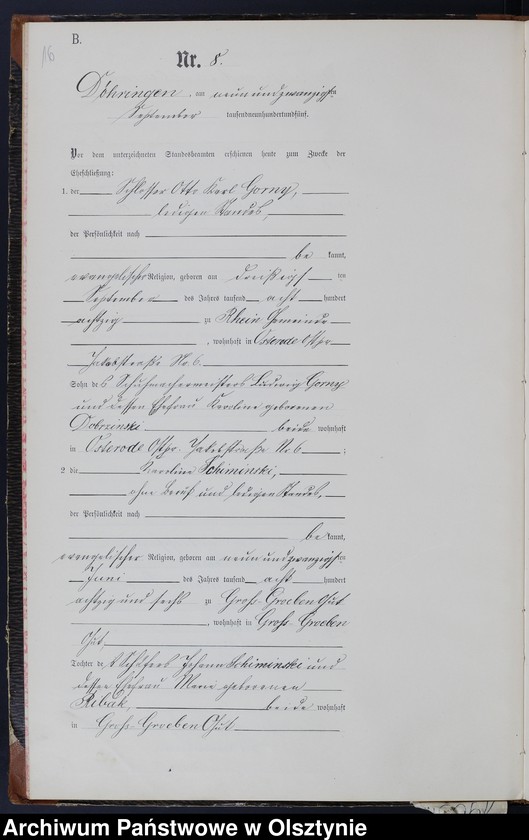 16
B.
Nr. 8.
Döhringen, am neunundzwanzigsten
September tausendneunhundertundfünf.
Vor dem unterzeichneten Standesbeamten erschienen heute zum Zwecke der
Eheschließung:
1. der Schlosser Otto Karl Gorny,
ledigen Standes,
der Persönlichkeit nach
be kannt,
evangelischer Religion, geboren am dreißigsten
September des Jahres tausend acht hundert
achtzig zu Rhein Gemeinde
, wohnhaft in Osterode Ostpr.
Jakobstraße Nr. 6.
Sohn des Schuhmachermeisters Ludwig Gorny
und dessen Ehefrau Karoline geborenen
Dobrzinski beide wohnhaft
in Osterode Ostpr. Jakobstraße Nr. 6 ;
2 die Karoline Schiminski,
ohne Beruf und ledigen Standes,
der Persönlichkeit nach
be kannt,
evangelischer Religion, geboren am neunundzwanzigsten
Juni des Jahres tausend acht hundert
achtzig und sechs zu Groß-Groeben Gut
, wohnhaft in Groß-Groeben
Gut,
Tochter des Schäfers Johann Schiminski und
dessen Ehefrau Marie geborenen
Ribak, beide wohnhaft
in Groß-Groeben Gut
Archiwum Państwowe w Olsztynie